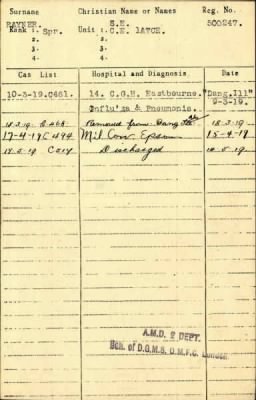 Surname Christian Name or Names Reg. No.
RAYNER. S.E. 500247.
Rank 1. Spr. Unit 1. C.E. LATCE.
2. 2.
3. 3.
4. 4.
Cas List Hospital and Diagnosis Date
10-3-19.C461. 14. C.G.H. Eastbourne. "Dang.Ill"
Influ'za & Pneumonia. 9-3-19.
18.3.19. C468 Removed from Dang 18-3-19
17-4-19 C494 Mil Con. Epsom 15-4-19
Discharged
A.M.D. 2 DEPT.
Bch. of D.G.M.S. O.M.F.C. London.